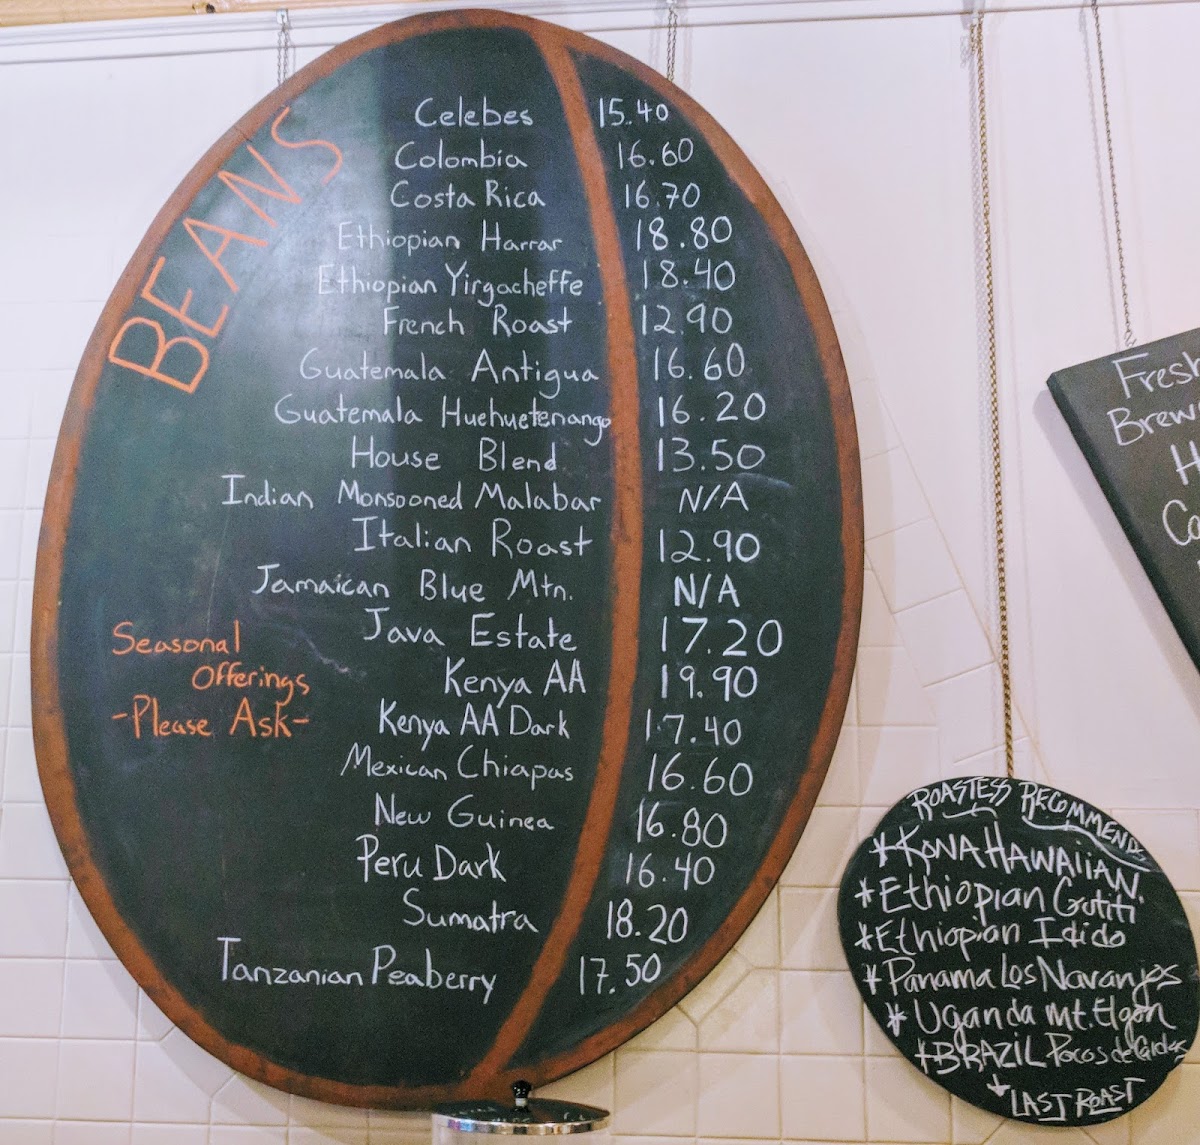 BEANS
Celebes 15.40
Colombia 16.60
Costa Rica 16.70
Ethiopian Harrar 18.80
Ethiopian Yirgacheffe 18.40
French Roast 12.90
Guatemala Antigua 16.60
Guatemala Huehuetenango 16.20
House Blend 13.50
Indian Monsooned Malabar N/A
Italian Roast 12.90
Jamaican Blue Mtn. N/A
Java Estate 17.20
Kenya AA 19.90
Kenya AA Dark 17.40
Mexican Chiapas 16.60
New Guinea 16.80
Peru Dark 16.40
Sumatra 18.20
Tanzanian Peaberry 17.50
Seasonal
Offerings
-Please Ask-
Fresh
Brew
H
ROASTESS RECOMMENDS
*KONA HAWAIIAN
*Ethiopian Gutiti
*Ethiopian Idido
*Panama Los Naranjos
*Uganda Mt. Elgon
*BRAZIL Pocos de
LAST ROAST